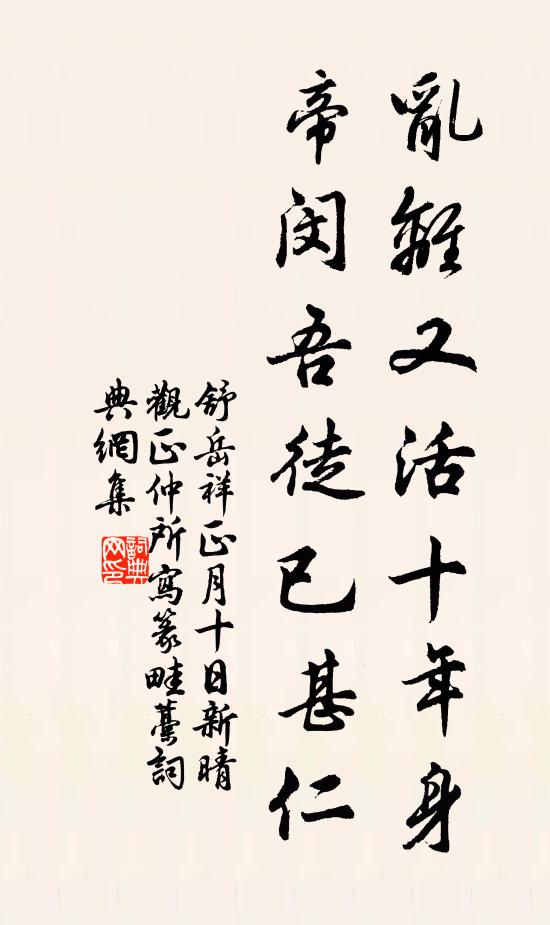 亂離又活十年身
帝閔吾徒已甚仁
舒岳祥正月十日新晴
觀正仲所寫篆畦藁詞
典網集
詞典
网印